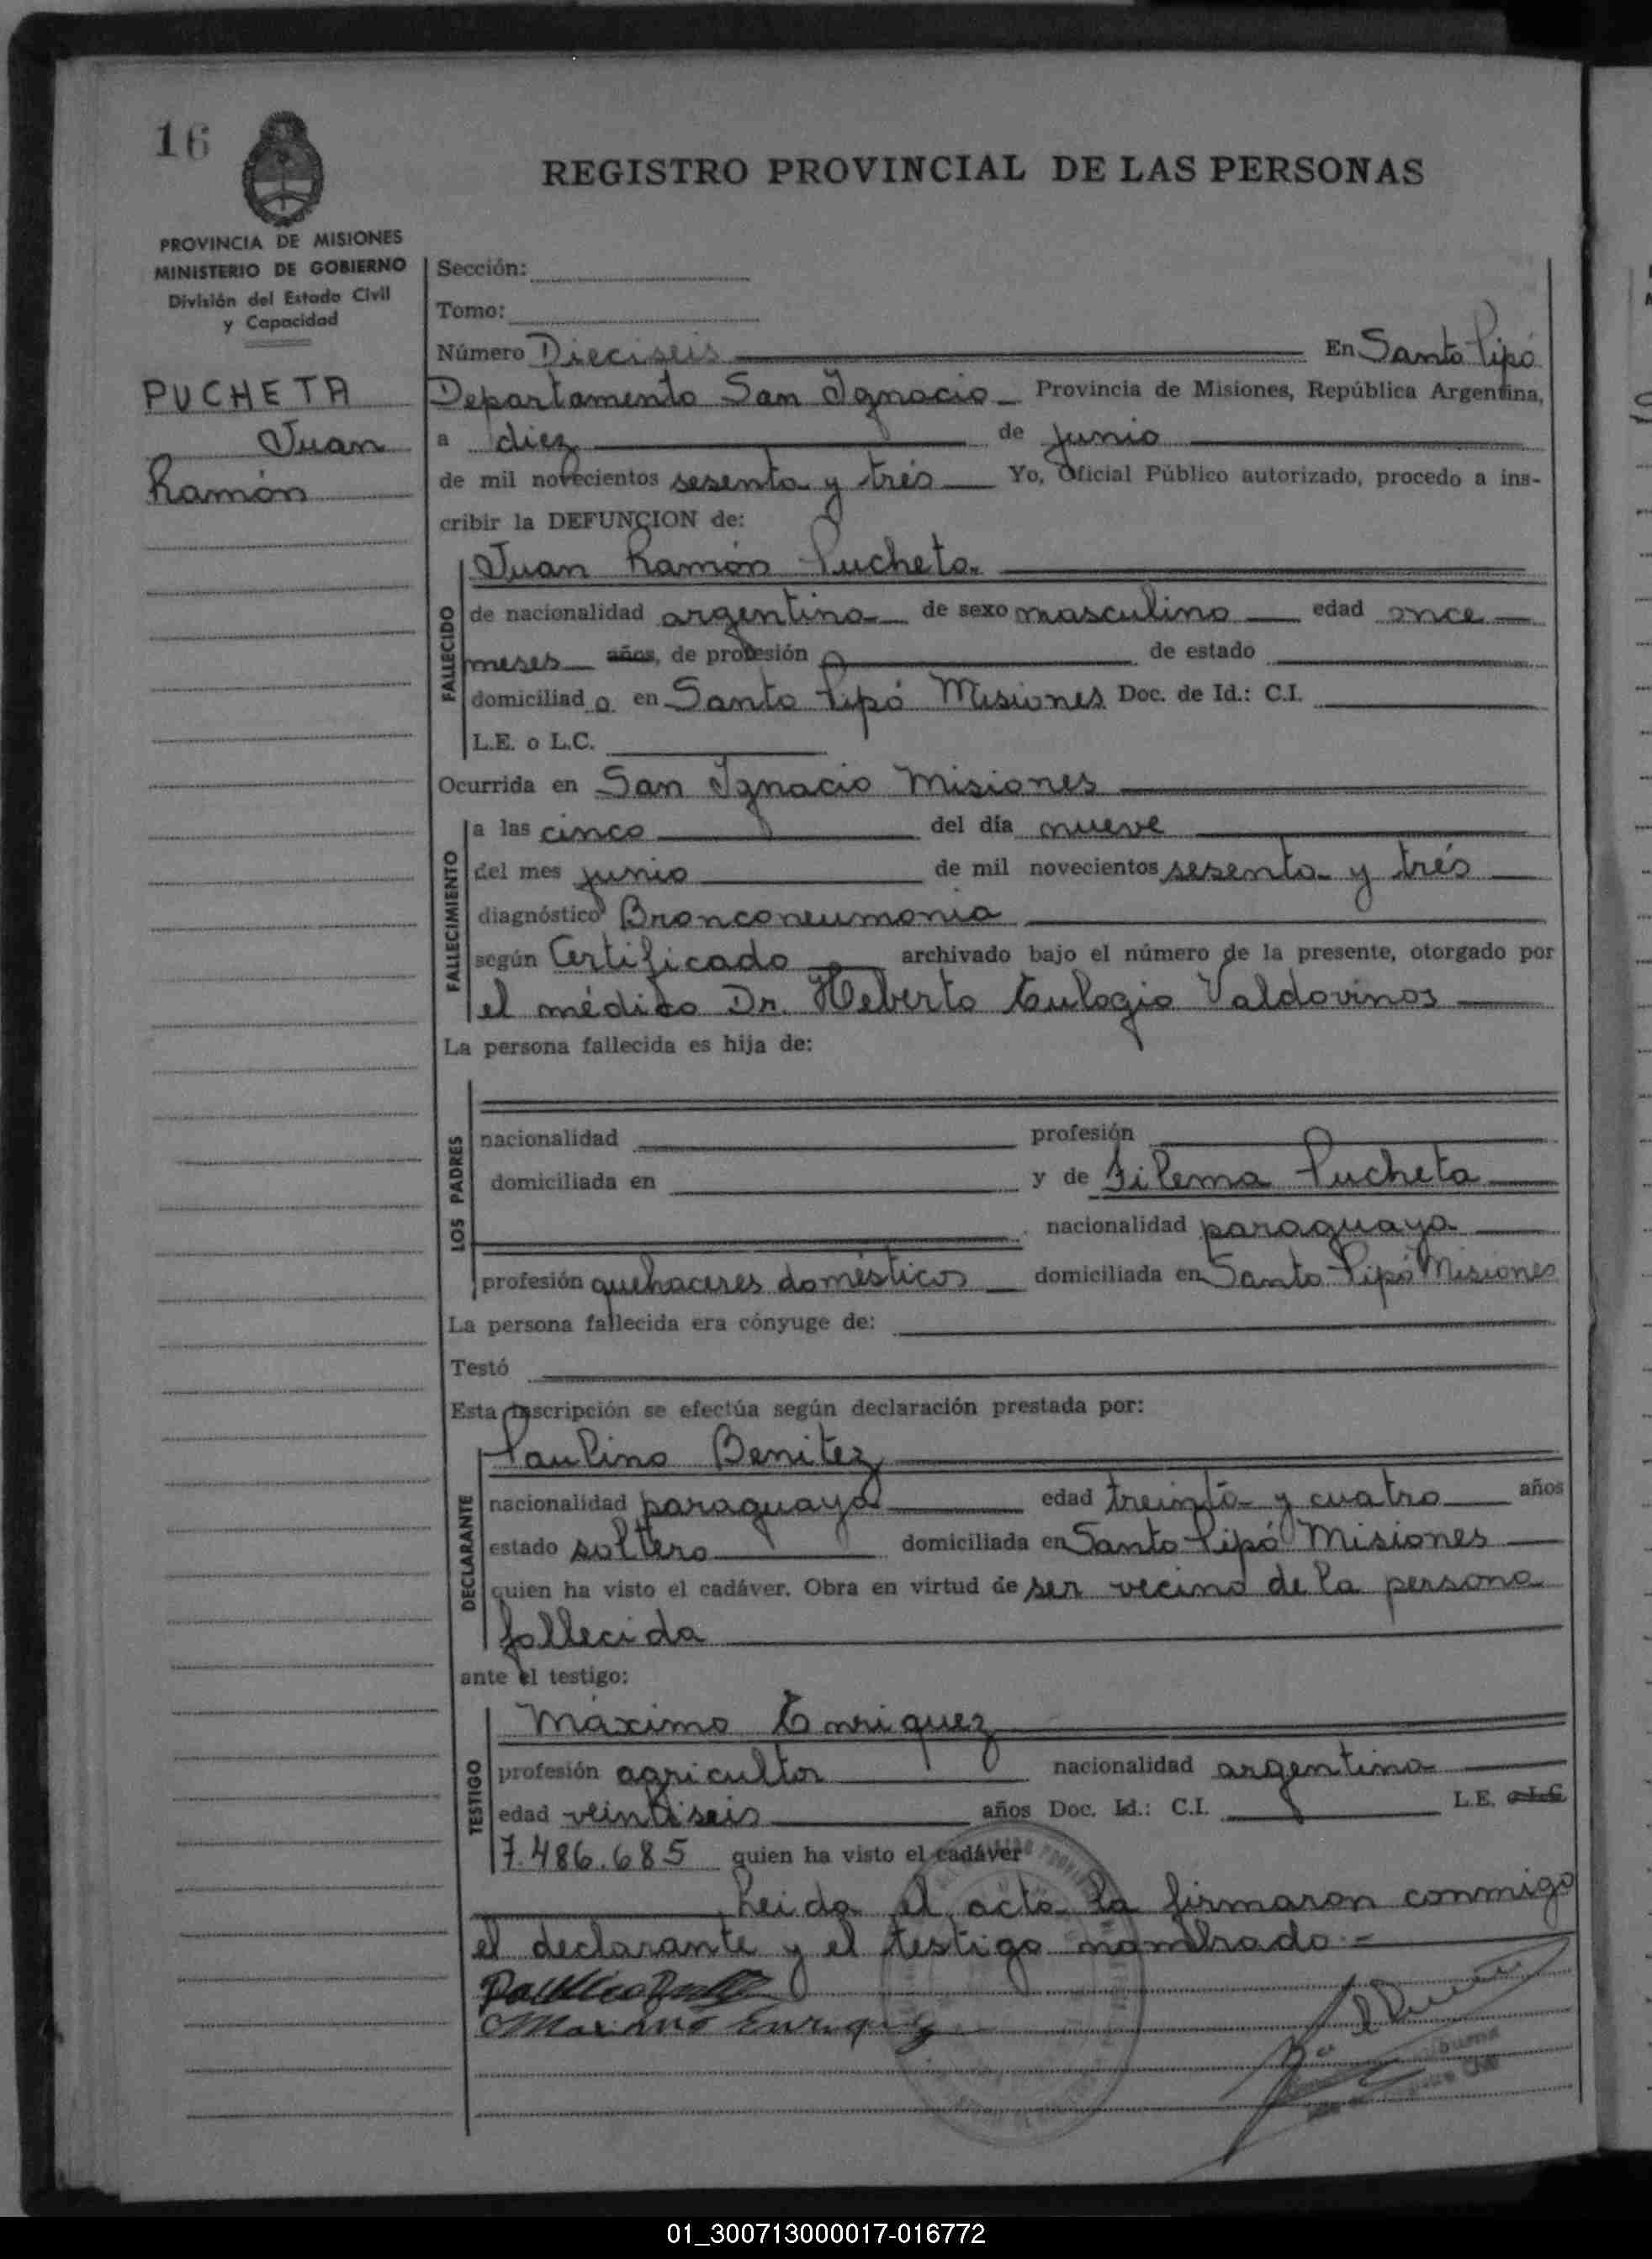 16
REGISTRO PROVINCIAL DE LAS PERSONAS
PROVINCIA DE MISIONES
MINISTERIO DE GOBIERNO
División del Estado Civil
y Capacidad
PUCHETA
Juan
Ramón
Sección:
Tomo:
Número Dieciseis En Santo Pipó
Departamento San Ignacio Provincia de Misiones, República Argentina,
a diez de junio
de mil novecientos sesenta y trés Yo, Oficial Público autorizado, procedo a ins-
cribir la DEFUNCION de:
Juan Ramón Pucheta
FALLECIDO
de nacionalidad argentina de sexo masculino edad once
meses años, de profesión de estado
domiciliado en Santo Pipó Misiones Doc. de Id.: C.I.
L.E. o L.C.
Ocurrida en San Ignacio Misiones
FALLECIMIENTO
a las cinco del día nueve
del mes junio de mil novecientos sesenta y trés
diagnóstico Bronconeumonia
según Certificado archivado bajo el número de la presente, otorgado por
el médico Dr. Heberto Eulogio Valdovinos
La persona fallecida es hija de:
LOS PADRES
nacionalidad profesión
domiciliada en y de Filema Pucheta
nacionalidad paraguaya
profesión quehaceres domésticos domiciliada en Santo Pipó Misiones
La persona fallecida era cónyuge de:
Testó
Esta inscripción se efectúa según declaración prestada por:
Paulino Benitez
DECLARANTE
nacionalidad paraguaya edad treinta y cuatro años
estado soltero domiciliada en Santo Pipó Misiones
quien ha visto el cadáver. Obra en virtud de ser vecino de la persona
fallecida
ante el testigo:
Máximo Enriquez
TESTIGO
profesión agricultor nacionalidad argentina
edad veintiseis años Doc. Id.: C.I. L.E. o L.C.
7.486.685 quien ha visto el cadáver
Leida el acta la firmaron conmigo
el declarante y el testigo nombrado.-
Maximo Enriquez
01_300713000017-016772